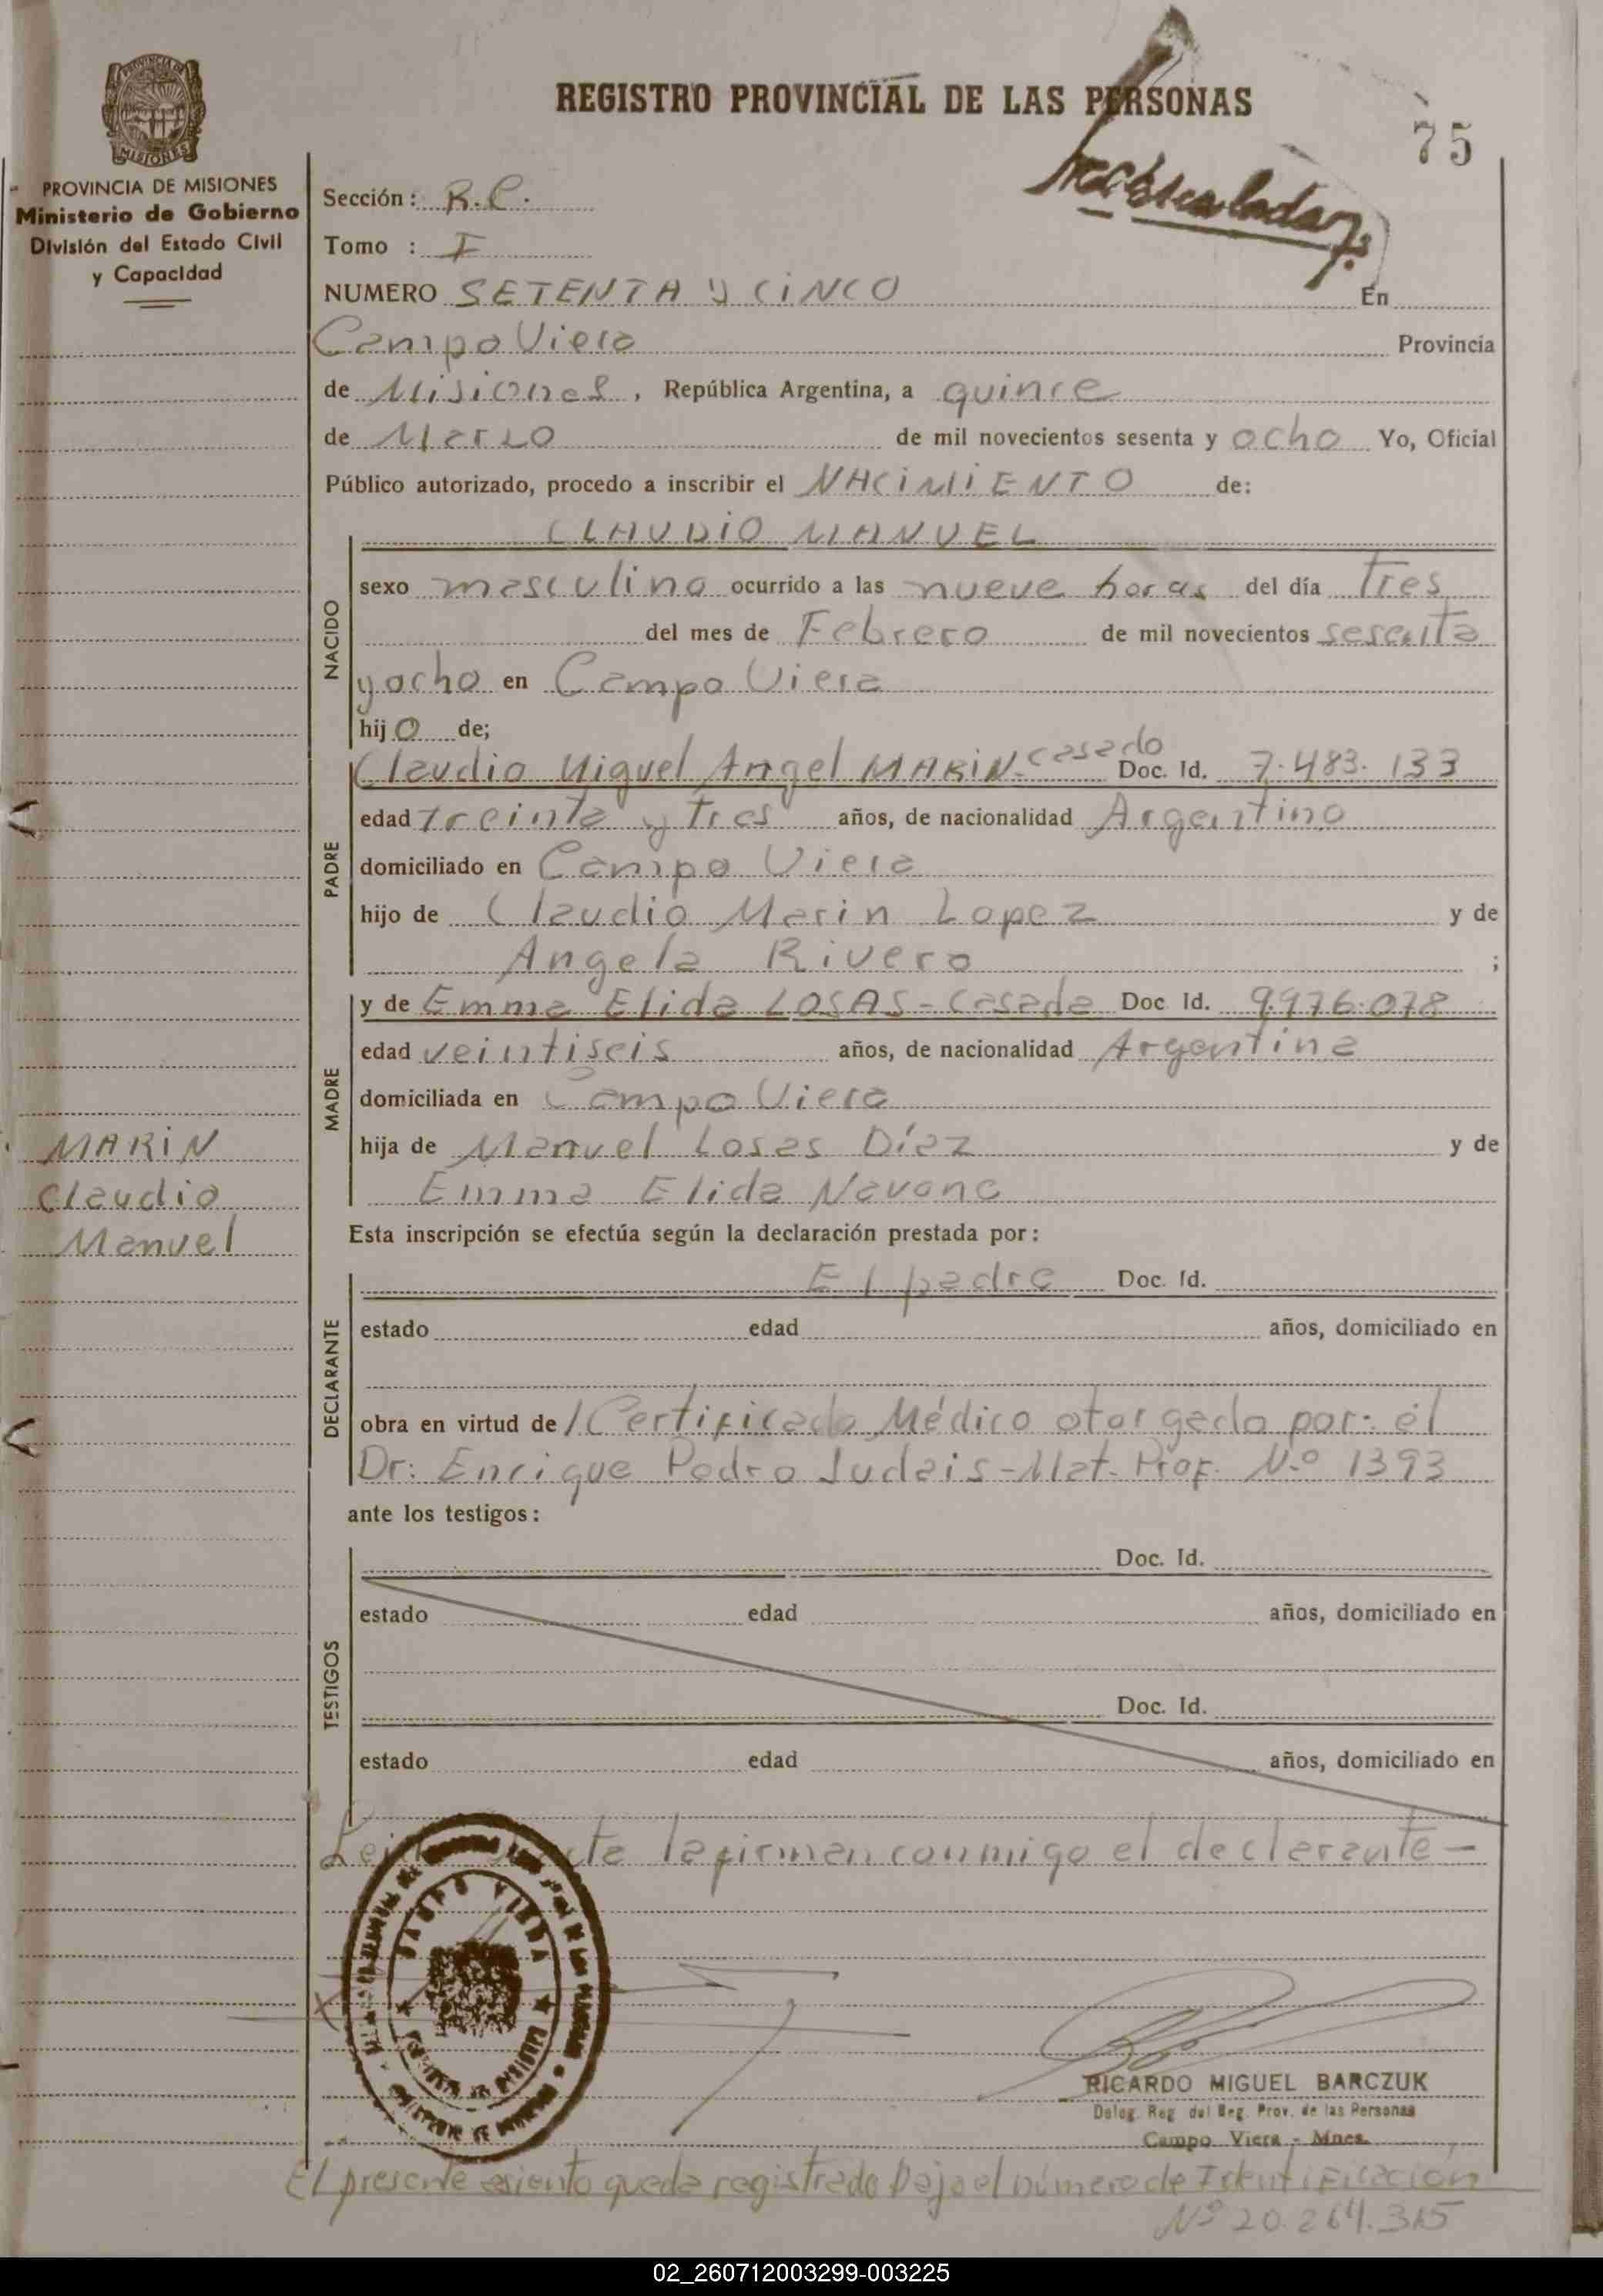 REGISTRO PROVINCIAL DE LAS PERSONAS
75
MISIONES
PROVINCIA DE MISIONES
Ministerio de Gobierno
División del Estado Civil
y Capacidad
Sección: R.C.
Tomo : I
NUMERO SETENTA y CiNCO En
Campo Viera Provincia
de Misiones, República Argentina, a quince
de Marzo de mil novecientos sesenta y ocho Yo, Oficial
Público autorizado, procedo a inscribir el NACiMiENTO de:
CLAUDiO MANUEL
NACIDO
sexo masculino ocurrido a las nueve horas del día Tres
del mes de Febrero de mil novecientos sesenta
y ocho en Campo Viera
hijo de;
PADRE
Claudio Miguel Angel MARiN-casado Doc. Id. 7.483.133
edad Treinta y Tres años, de nacionalidad Argentino
domiciliado en Campo Viera
hijo de Claudio Marin Lopez y de
Angela Rivero ;
MADRE
y de Emma Elida LOSAS-Casada Doc Id. 9.976.078
edad veintiseis años, de nacionalidad Argentina
domiciliada en Campo Viera
hija de Manuel Losas Díaz y de
Emma Elida Navone
MARiN
Claudio
Manuel
Esta inscripción se efectúa según la declaración prestada por:
DECLARANTE
El padre Doc. Id.
estado edad años, domiciliado en
obra en virtud de / Certificado Médico otorgado por: el
Dr: Enrique Pedro Judais-Mat. Prof. N.º 1393
ante los testigos:
TESTIGOS
Doc. Id.
estado edad años, domiciliado en
Doc. Id.
estado edad años, domiciliado en
la firman conmigo el declarante-
CAMPO VIERA
RICARDO MIGUEL BARCZUK
Deleg. Reg. del Reg. Prov. de las Personas
Campo Viera - Mnes.
El presente asiento queda registrado bajo el número de Identificación
Nº 20.264.315
02_260712003299-003225